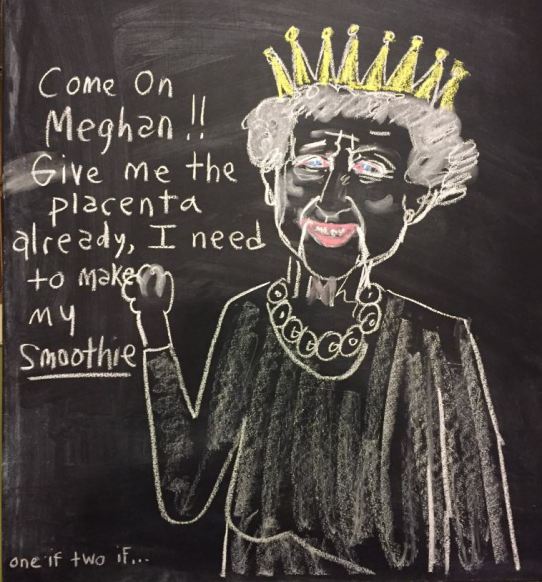 Come On
Meghan!!
Give me the
placenta
already, I need
to make
my
Smoothie
one if two if...